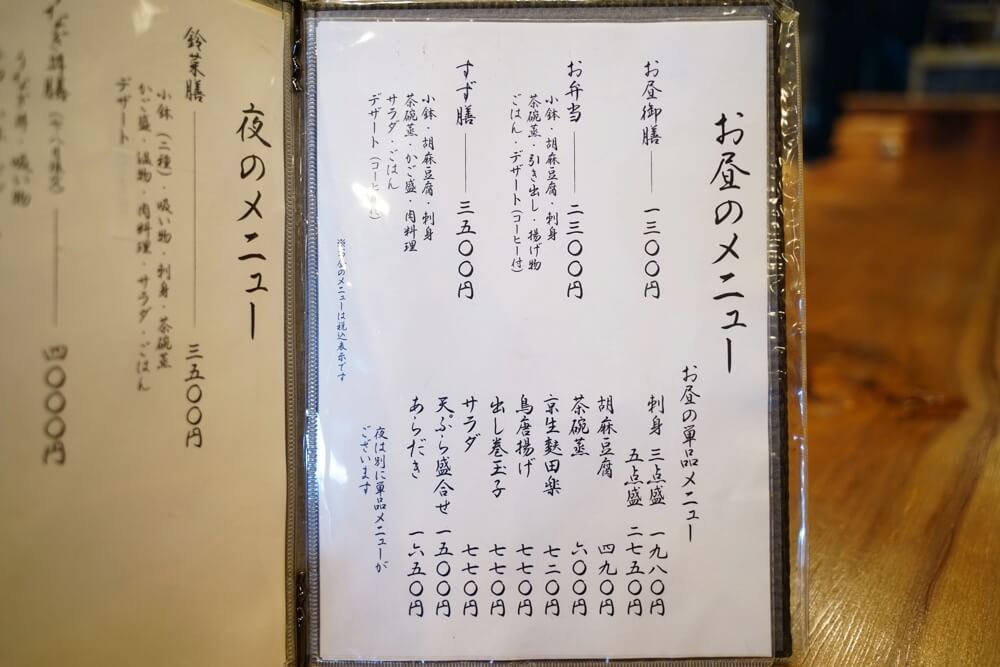 お昼のメニュー
お昼御膳 一三〇〇円
お弁当 二三〇〇円
小鉢・胡麻豆腐・刺身
茶碗蒸・引き出し・揚げ物
ごはん・デザート(コーヒー付)
すず膳 三五〇〇円
小鉢・胡麻豆腐・刺身
茶碗蒸・かご盛・肉料理
サラダ・ごはん
デザート(コーヒー付)
のメニューは税込表示です
お昼の単品メニュー
刺身 三点盛 一九八〇円
五点盛 二七五〇円
胡麻豆腐 四九〇円
茶碗蒸 六〇〇円
京生麩田楽 七二〇円
鳥唐揚げ 七七〇円
出し巻玉子 七七〇円
サラダ 七七〇円
天ぷら盛合せ 一五〇〇円
あらだき 一六五〇円
夜は別に単品メニューが
ございます
夜のメニュー
鈴菜膳 三五〇〇円
小鉢(二種)・吸い物・刺身・茶碗蒸
かご盛・温物・肉料理・サラダ・ごはん
デザート
四〇〇〇円
吸い物